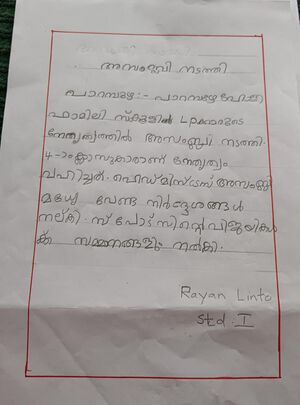 അസംബ്ലി നടത്തി
പാറമ്പുഴ :- പാറമ്പുഴ ഹോളി
ഫാമിലി സ്കൂളിൽ LP
നേതൃത്വത്തിൽ അസംബ്ലി നടത്തി.
4-ാംക്ലാസുകാരാണ് നേതൃത്വം
വഹിച്ചത്. ഹെഡ്മിസ്ട്രസ് അസംബ്ലി
വേണ്ട നിർദ്ദേശങ്ങൾ
നല്കി. സ്പോട്സിന്റെ വിജയികൾ
ക്ക് സമ്മനങ്ങളും നൽകി.
Rayan Linto
std. I